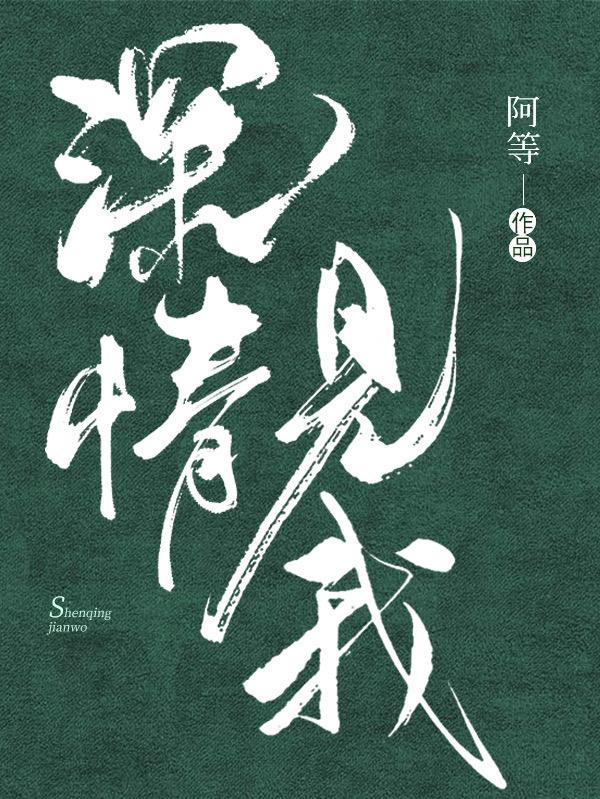 深情
見我
阿等
作品
Shenqing
jianwo